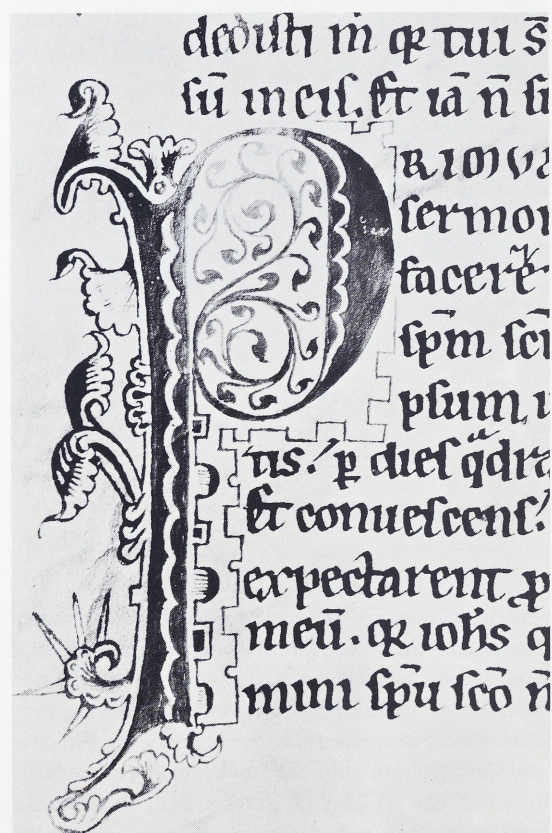 dedisti m̄ qꝛ tui s̄
sū in eis. Et iā n̄ su
PRIMVM
sermon
facerē
sp̄m sc̄i
psum u
tis! ꝑ dies q̄dra
Et conuescens!
expectarent ꝓ
meū. qꝛ ioh̄s q
mini sp̄u sc̄o n̄